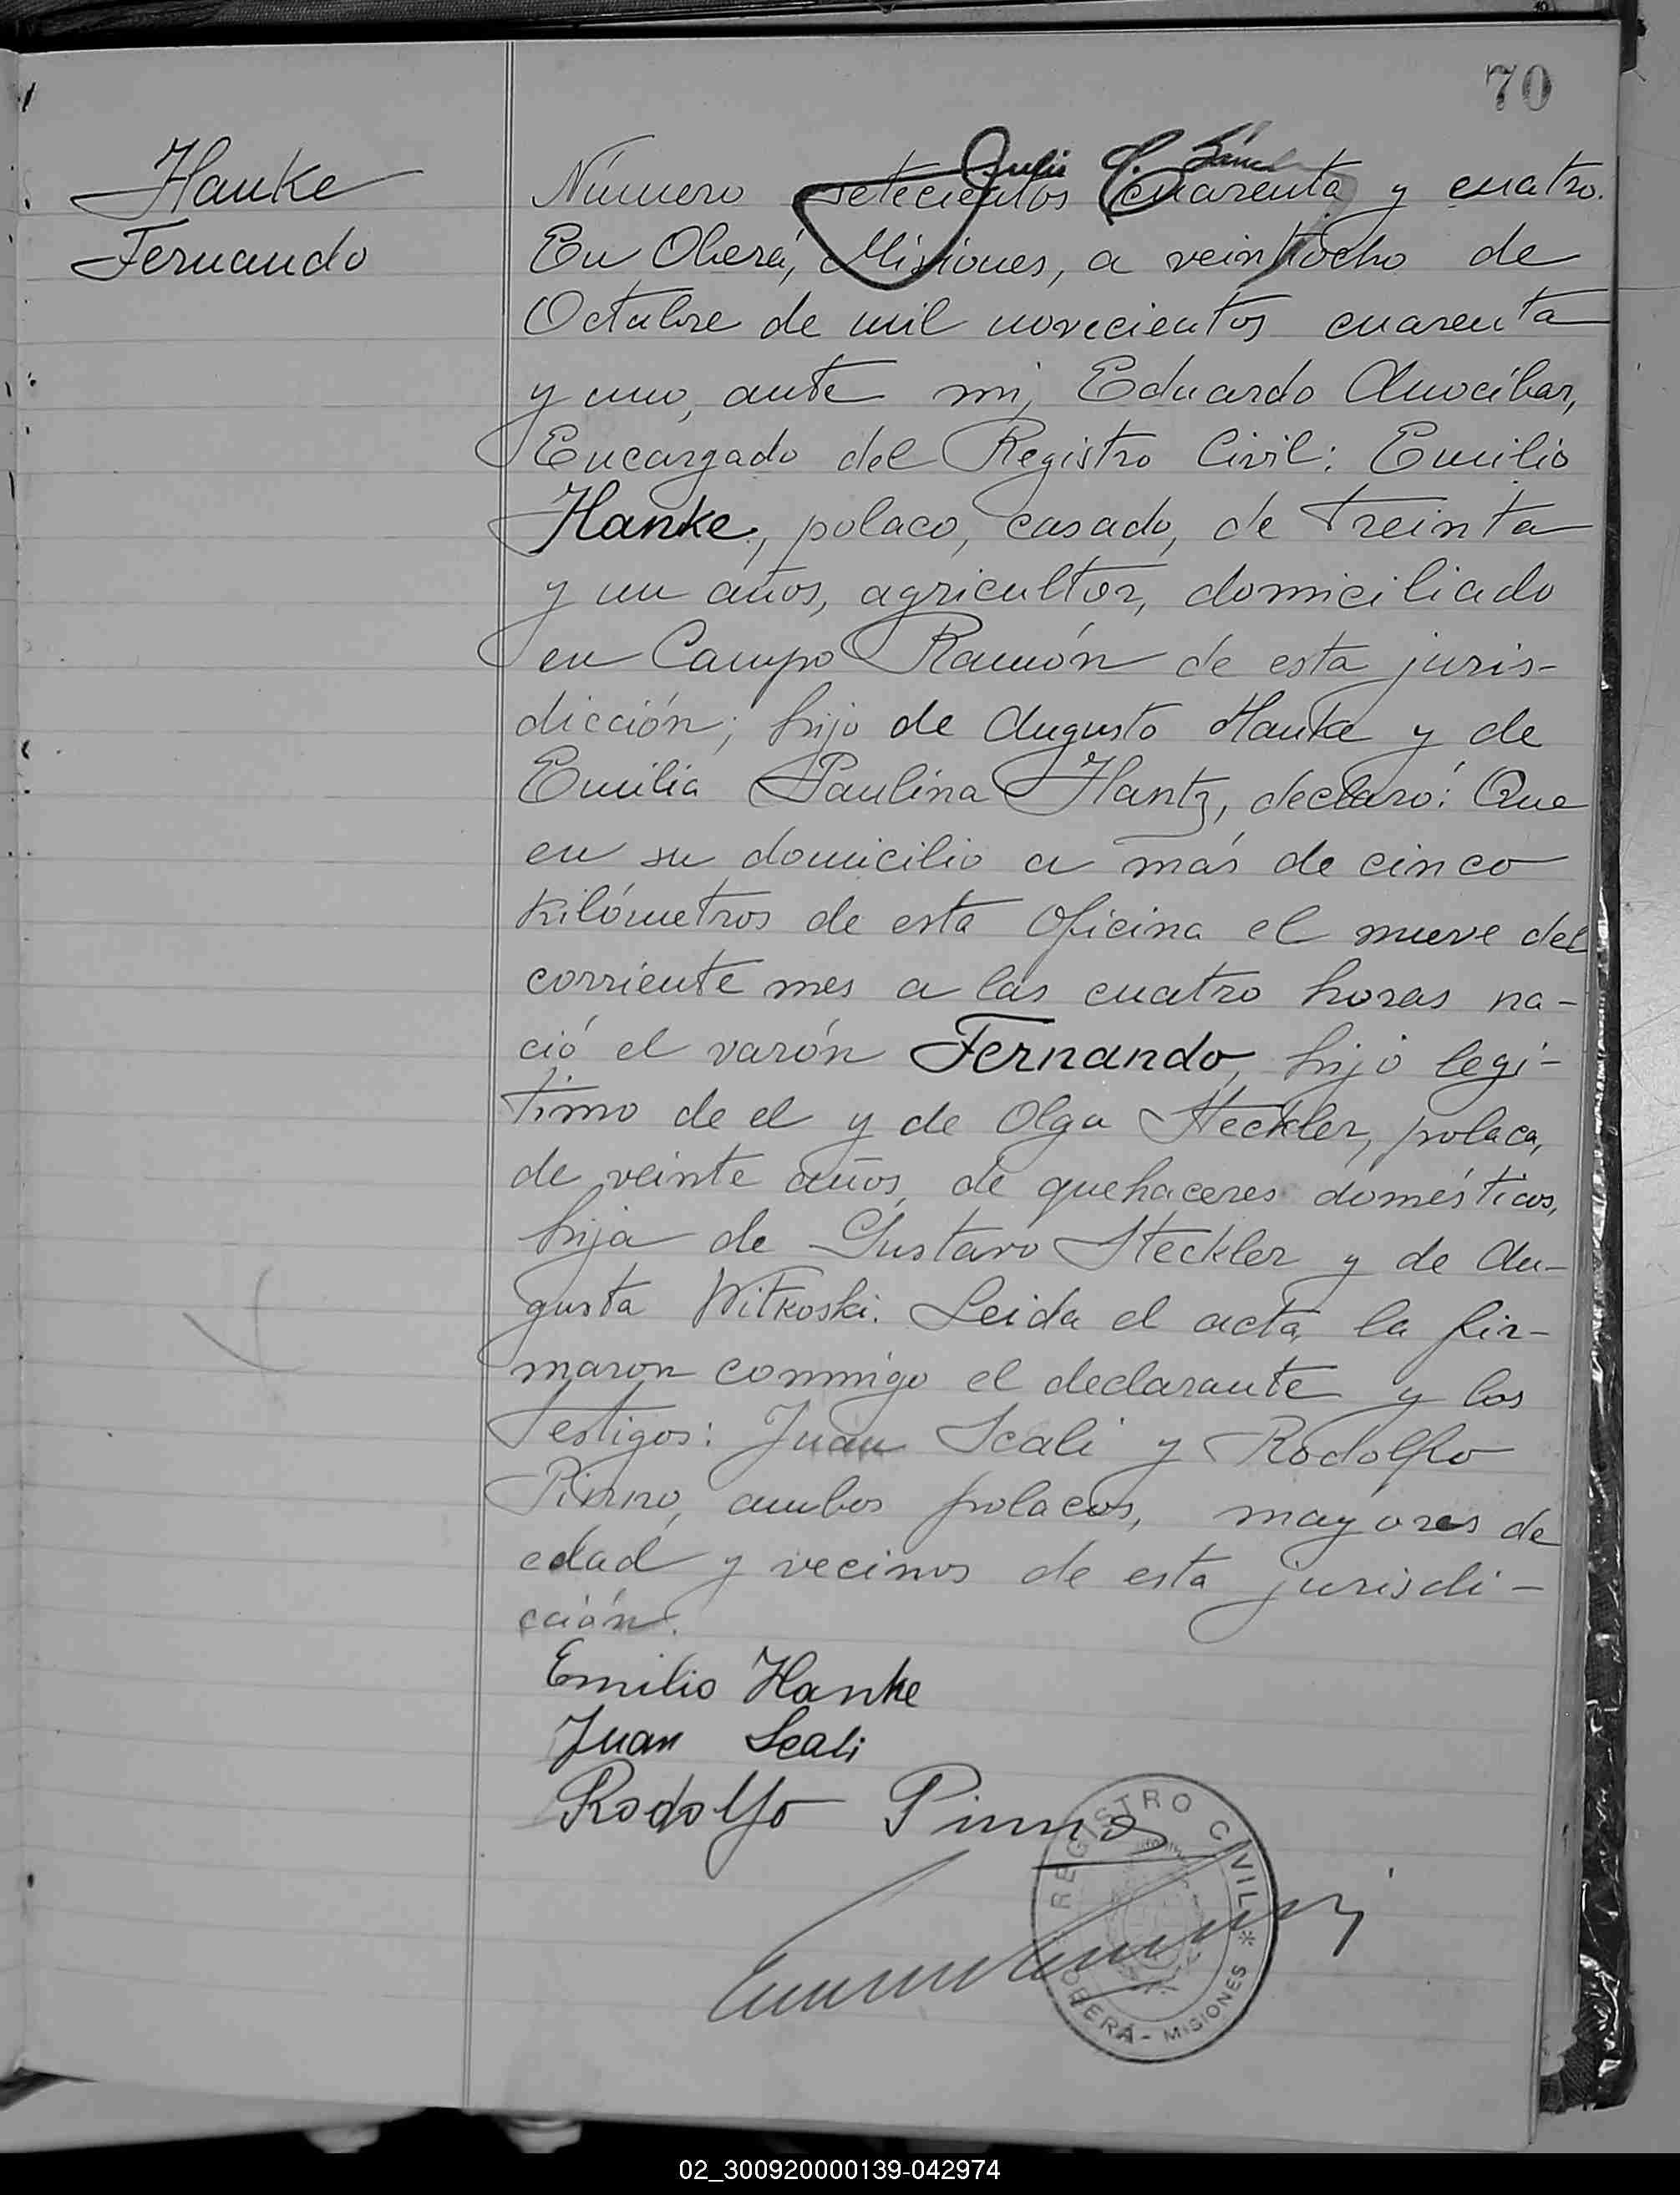 70
Hanke
Fernando
Julio
Número setecientos cuarenta y cuatro.
En Oberá, Misiones, a veintiocho de
Octubre de mil novecientos cuarenta
y uno, ante mi, Eduardo Anocibar,
Encargado del Registro Civil: Emilio
Hanke, polaco, casado, de treinta
y un años, agricultor, domiciliado
en Campo Ramón de esta juris-
dicción; hijo de Augusto Hanke y de
Emilia Paulina Hantz, declaró: Que
en su domicilio a más de cinco
kilómetros de esta Oficina el nueve del
corriente mes a las cuatro horas na-
ció el varón Fernando, hijo legi-
timo de el y de Olga Steckler, polaca,
de veinte años, de quehaceres domésticos,
hija de Gustavo Steckler y de Au-
gusta Witkoski. Leida el acta, la fir-
maron conmigo el declarante y los
testigos: Juan Scali y Rodolfo
Pinno, ambos polacos, mayores de
edad y vecinos de esta jurisdi-
cción.
Emilio Hanke
Juan Scali
Rodolfo Pinno
REGISTRO CIVIL
OBERÁ - MISIONES
02_300920000139-042974